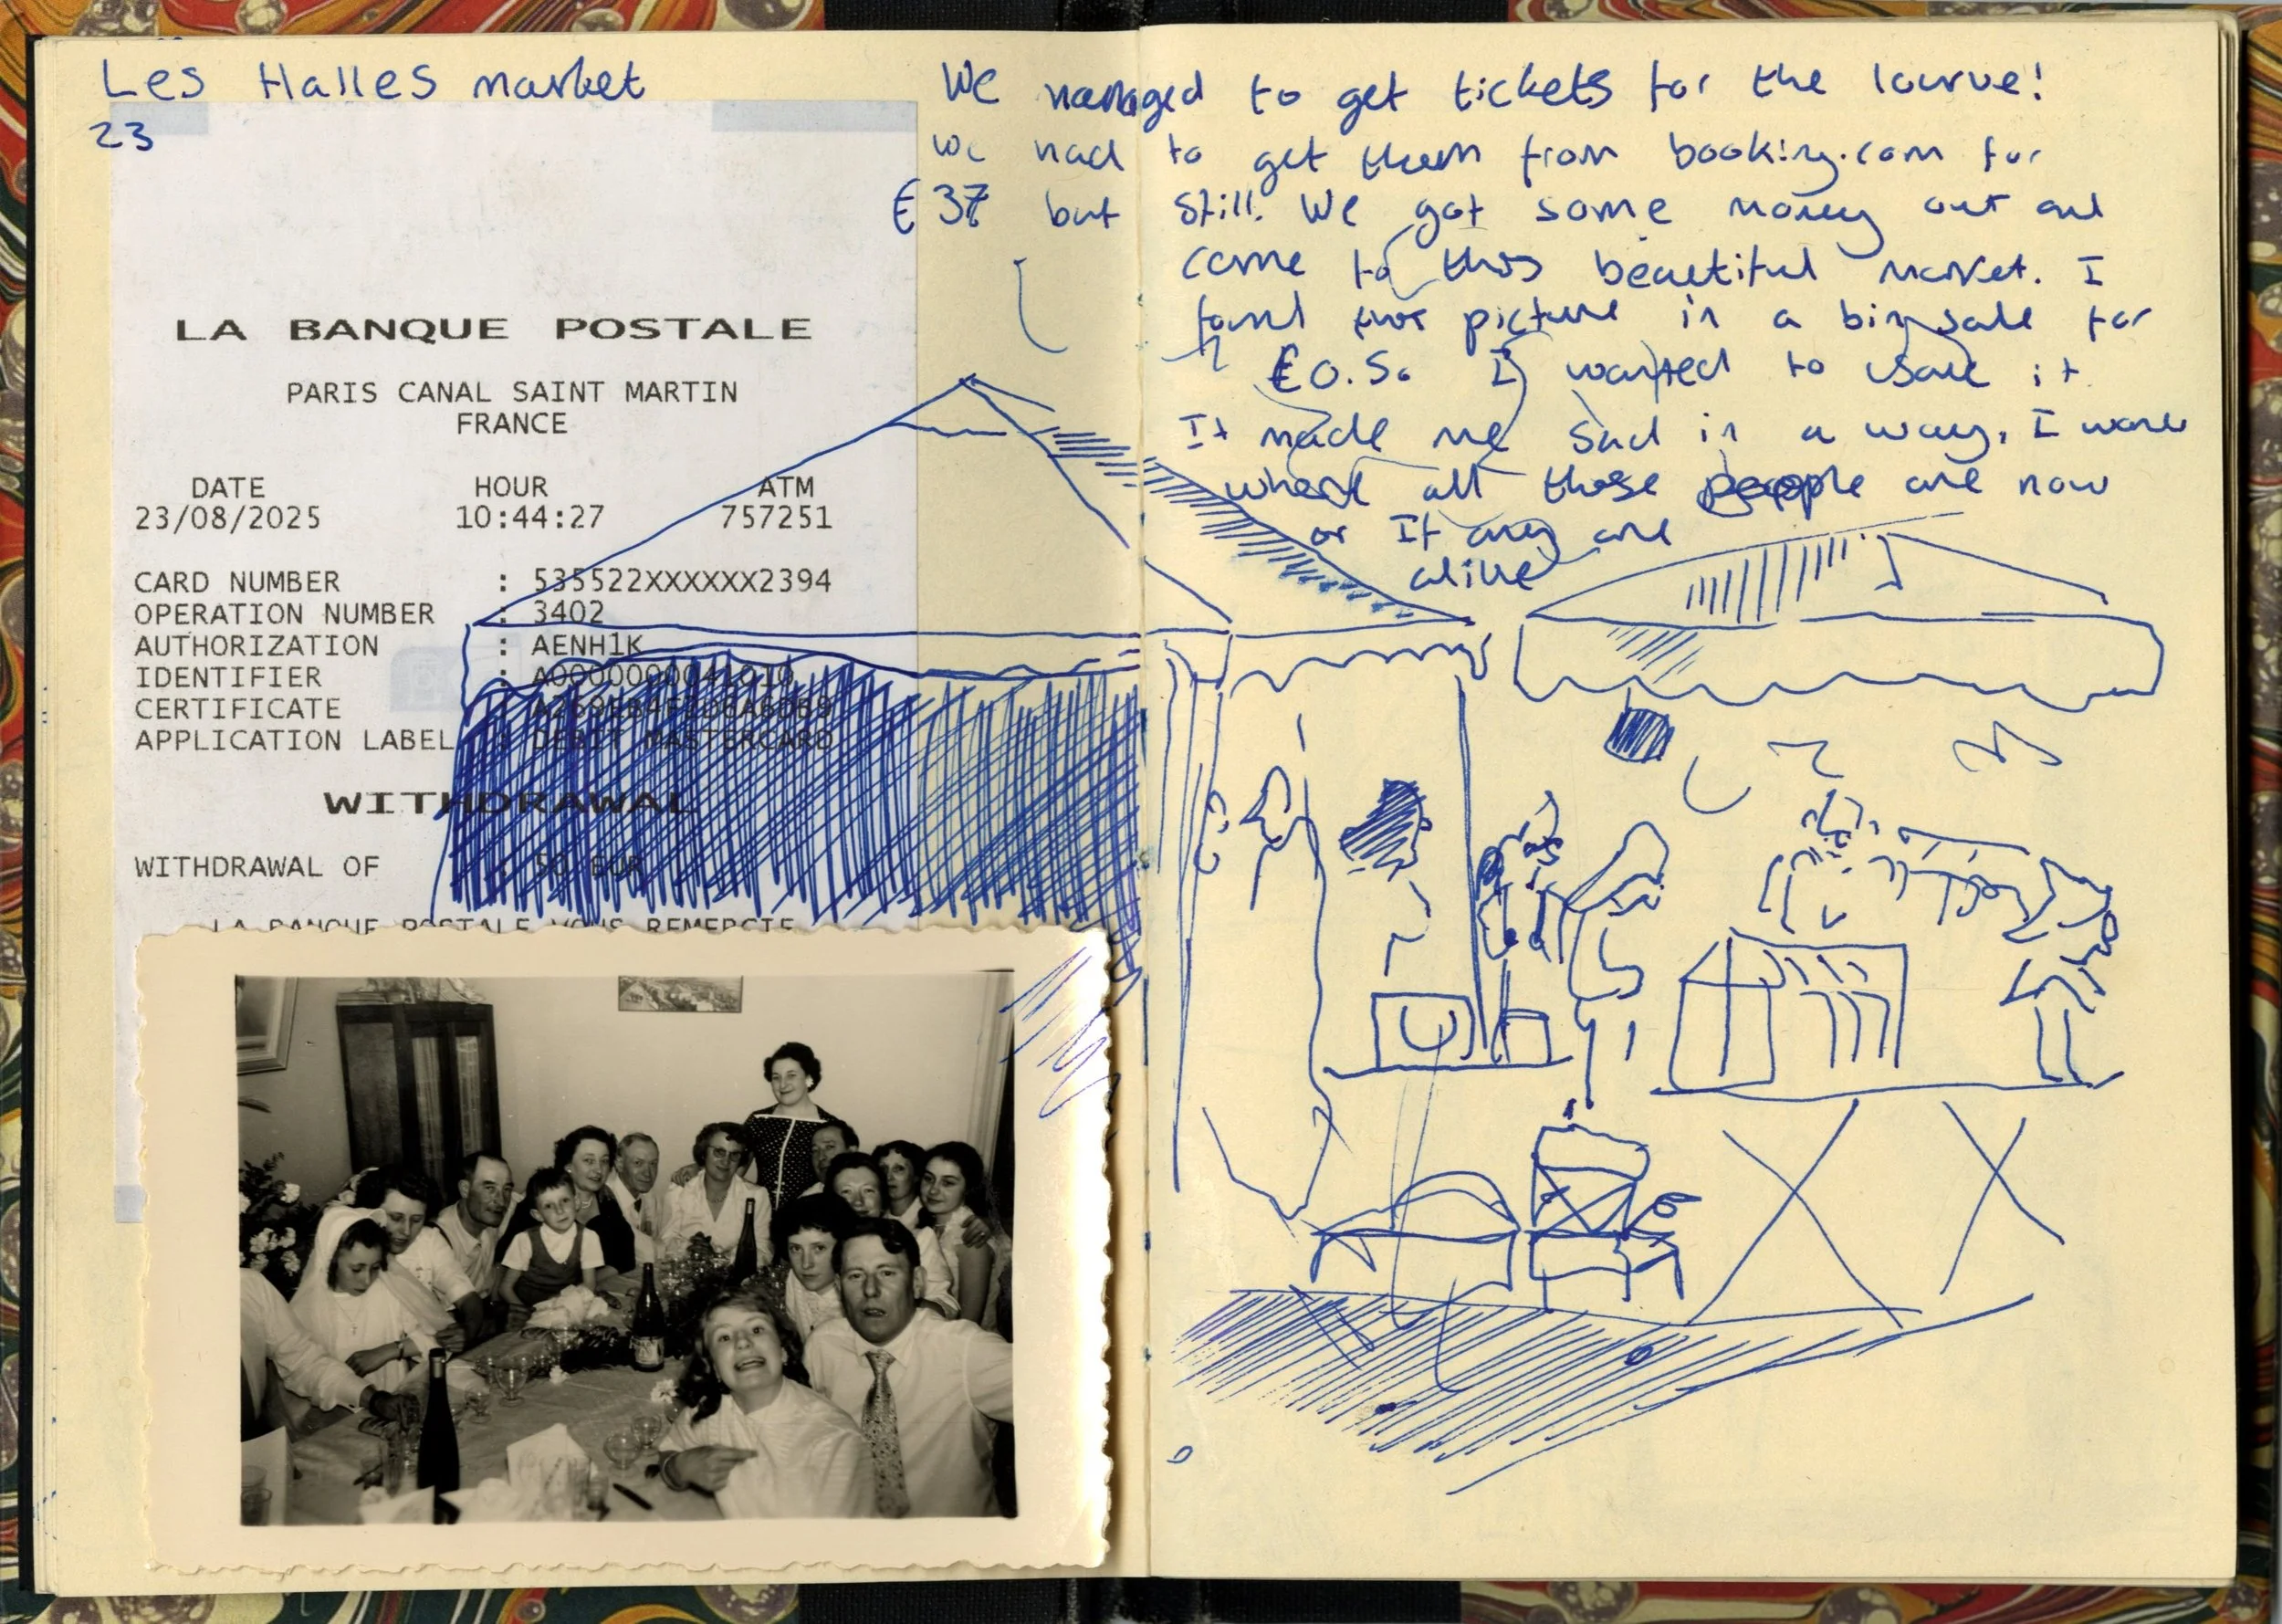 Les Halles market
23
We managed to get tickets for the lourve!
we had to get them from booking.com for
€37 but still. We got some money out and
came to this beautiful market. I
found this picture in a bin sale for
€0.50 I wanted to save it.
It made me sad in a way, I
where all those people are now
or If any are
alive
LA BANQUE POSTALE
PARIS CANAL SAINT MARTIN
FRANCE
DATE HOUR ATM
23/08/2025 10:44:27 757251
CARD NUMBER : 535522XXXXXX2394
OPERATION NUMBER : 3402
AUTHORIZATION : AENH1K
IDENTIFIER : A0000000041010
CERTIFICATE :
APPLICATION LABEL : DEBIT MASTERCARD
WITHDRAWAL
WITHDRAWAL OF : 50 EUR
LA BANQUE POSTALE VOUS REMERCIE